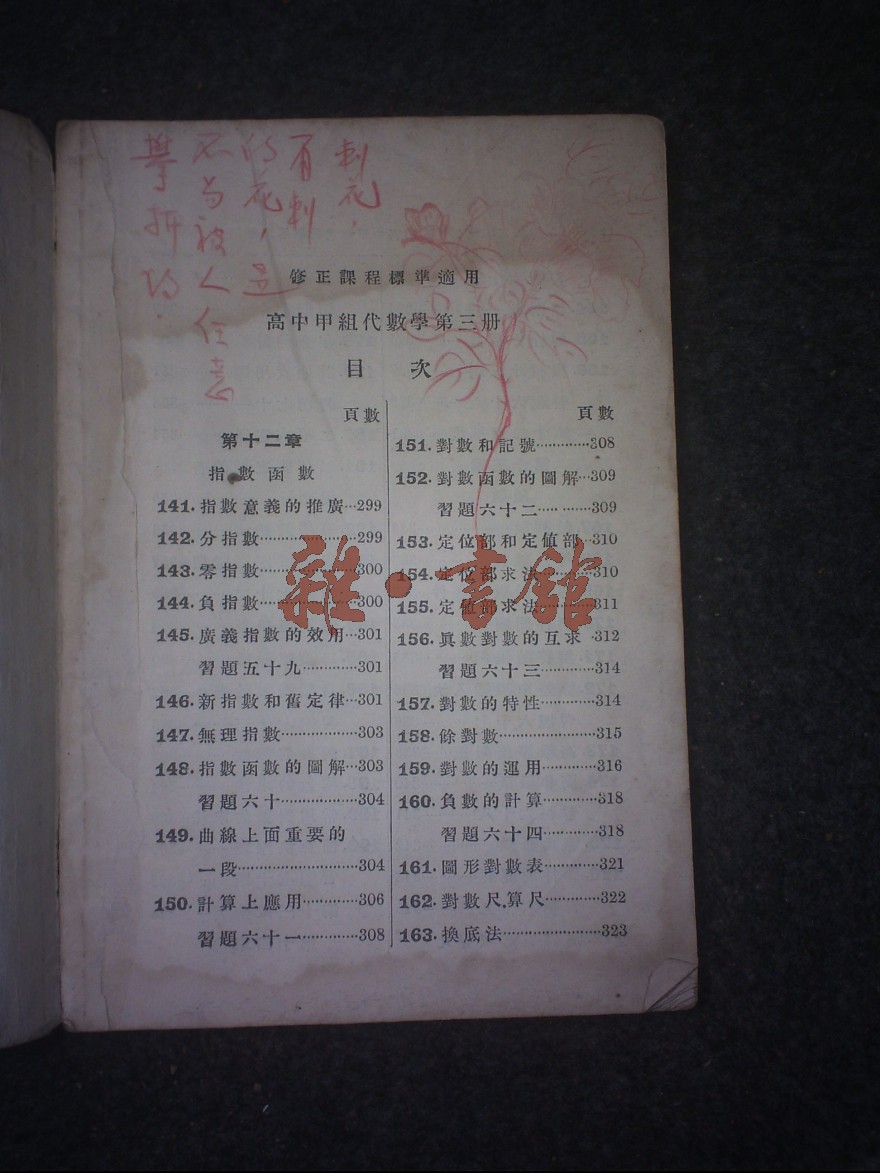 刺花：
有刺
的花，是
不易被人任意
攀折的．
修正課程標準適用
高中甲組代數學第三册
目　次
頁數
第十二章
指數函數
141.指數意義的推廣…299
142.分指數……………299
143.零指數……………300
144.負指數……………300
145.廣義指數的效用…301
習題五十九…………301
146.新指數和舊定律…301
147.無理指數…………303
148.指數函數的圖解…303
習題六十……………304
149.曲線上面重要的
一段…………………304
150.計算上應用………306
習題六十一…………308
頁數
151.對數和記號………308
152.對數函數的圖解…309
習題六十二…………309
153.定位部和定値部…310
154.定位部求法………310
155.定値部求法………311
156.眞數對數的互求…312
習題六十三…………314
157.對數的特性………314
158.餘對數……………315
159.對數的運用………316
160.負數的計算………318
習題六十四…………318
161.圖形對數表………321
162.對數尺,算尺………322
163.換底法……………323
雜·書館